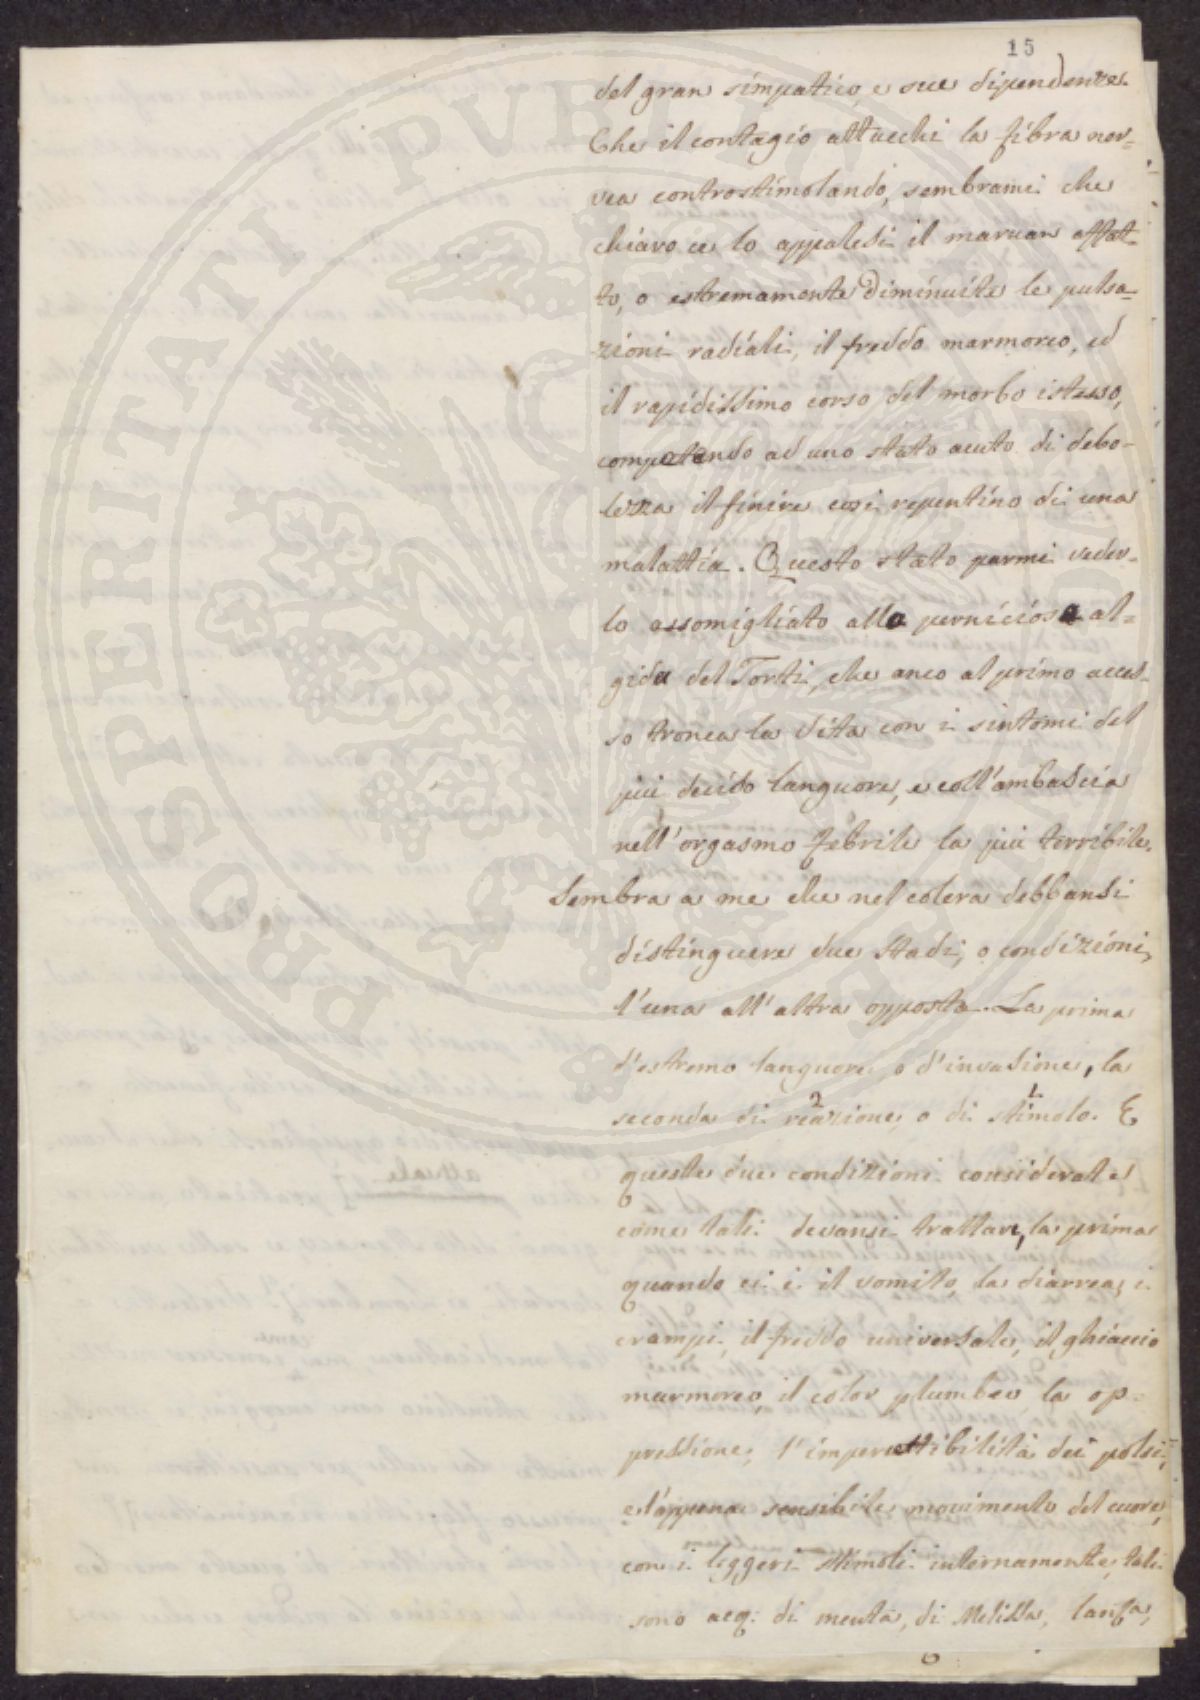 15
del gran simpatico, e sue dipendenze.
Che il contagio attacchi la fibra ner=
vea controstimolando, sembrami che
chiaro ce lo appalesi il mancar affat=
to, o estremamente diminuite le pulsa=
zioni radiali, il freddo marmoreo, ed
il rapidissimo corso del morbo istesso,
competendo ad uno stato acuto di debo=
lezza il finire così repentino di una
malattia. Questo stato parmi veder=
lo assomigliato alla perniciosa al=
gida del Torti, che anco al primo acces=
so tronca la vita con i sintomi del
più deciso languore, e coll'ambascia
nell'orgasmo febrile la più terribile.
Sembra a me che nel colera debbansi
distinguere due stadi, o condizioni,
l'una all'altra opposta. La prima
d'estremo languore o d'invasione, la
seconda di reazione, o di stimolo. E
2 1
queste due condizioni considerate
come tali devansi trattare, la prima
quando ci è il vomito, la diarrea, i
crampi, il freddo universale, il ghiaccio
marmoreo, il color plumbeo, la op=
pressione, l'impercettibilità dei polsi,
e l'appena sensibile movimento del cuore,
con i leggeri stimoli internamente, tali
sono acq: di menta, di Melissa,
PROSPERITATI PUBLICAE
attuale